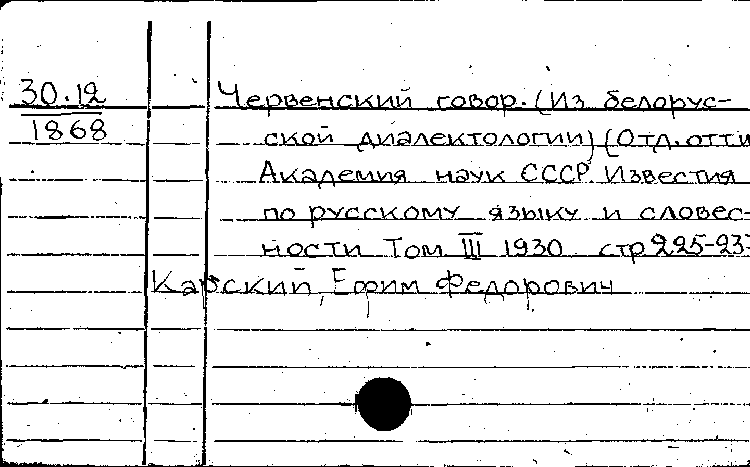 30.12
1868
Червенский говор. (Из белорус-
ской диалектологии) (Отд. отти
Академия наук СССР. Известия
по русскому языку и словес-
ности Том III 1930 стр 225-237
Карский, Ефим Федорович